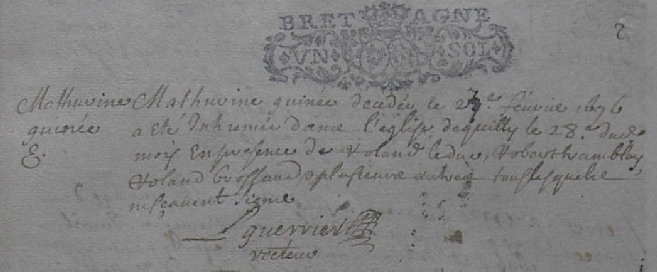 BRETAGNE
VN SOL
2
Mathurine
quinée
Mathurine quinée decedée le 27e février 1676
a eté Inhumée dans l'église de quilly le 28e dud
mois En presence de Roland leduc, Robert hamblay,
Roland brossaud, & plusieurs autres tous lesquels
ne sçavent signe
L guerrier
recteur